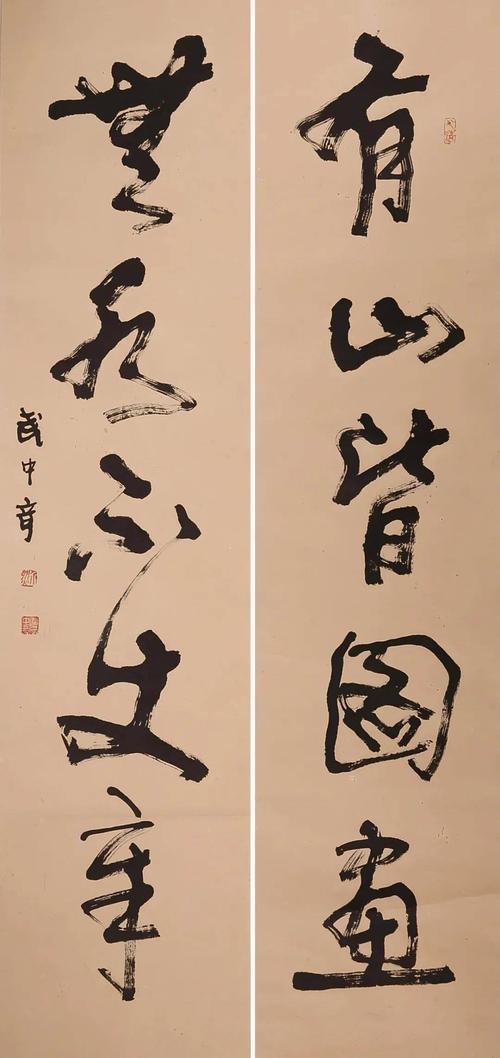 有山皆图畫
無水不文章
武中奇